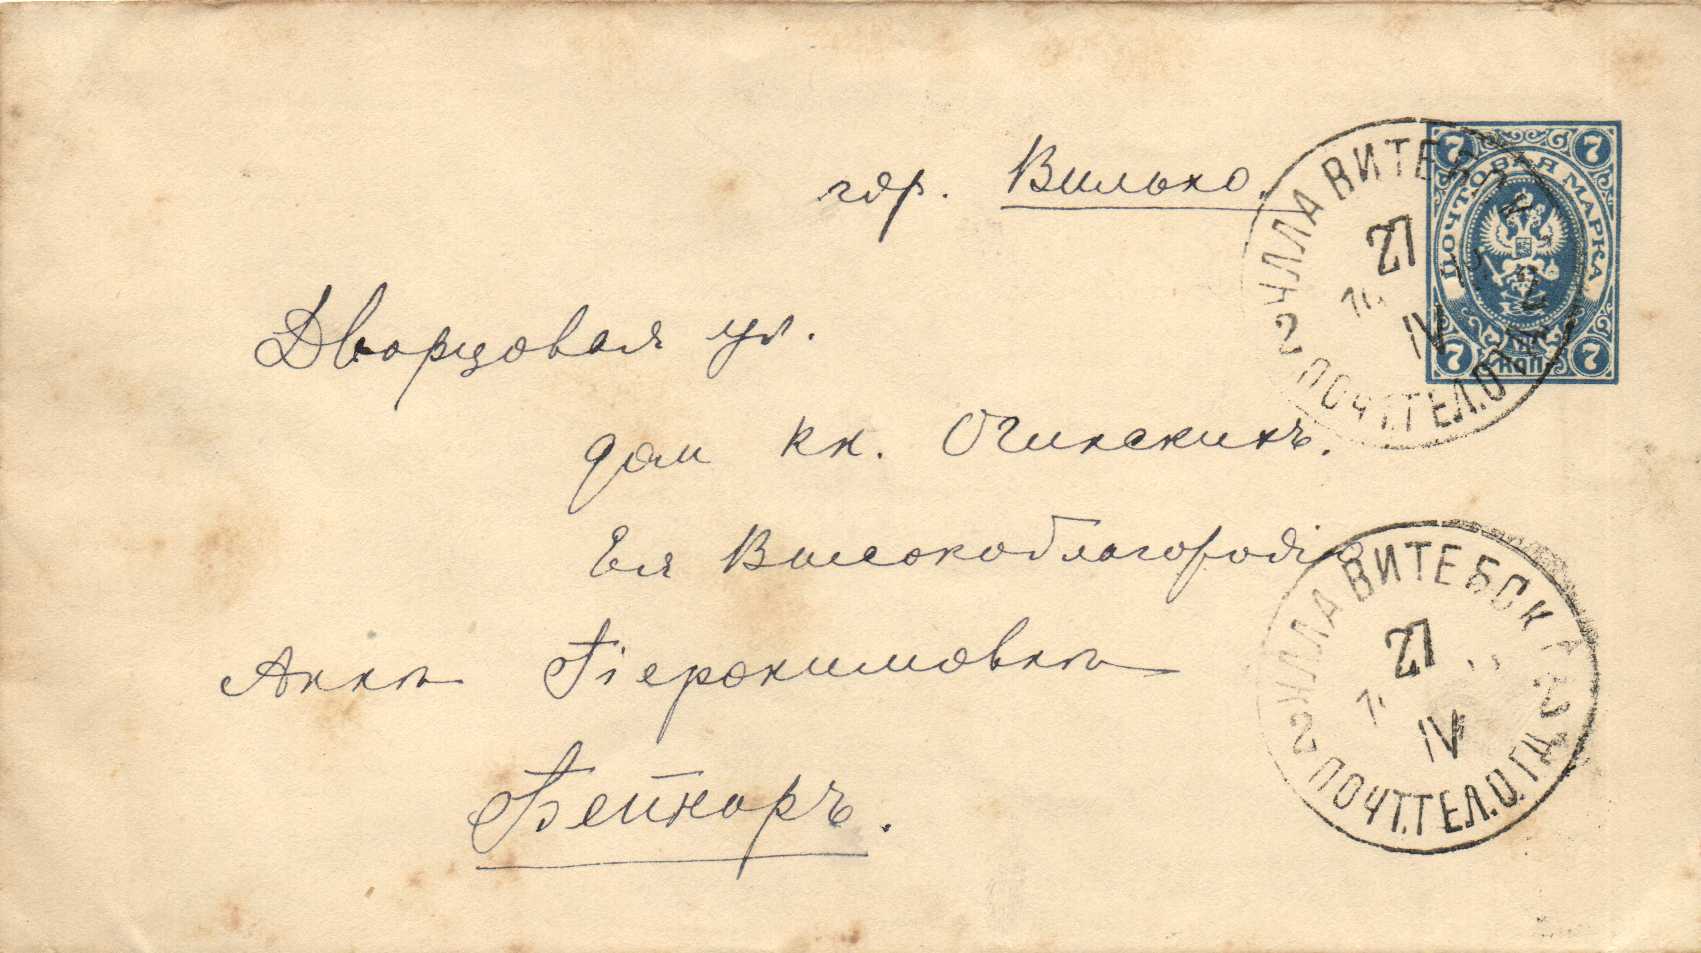 гор. Вильно.
Дворцовая ул.
дом кн. Огинскихъ.
Ея Высокоблагородію
Аннѣ Іеронимовнѣ
Бейнаръ.
7 7
ПОЧТОВАЯ МАРКА
7 КОП. 7
ВИТЕБСК
27
IV
2 ПОЧТ.ТЕЛ.О.
ВИТЕБСК
27
IV
2 ПОЧТ.ТЕЛ.О.